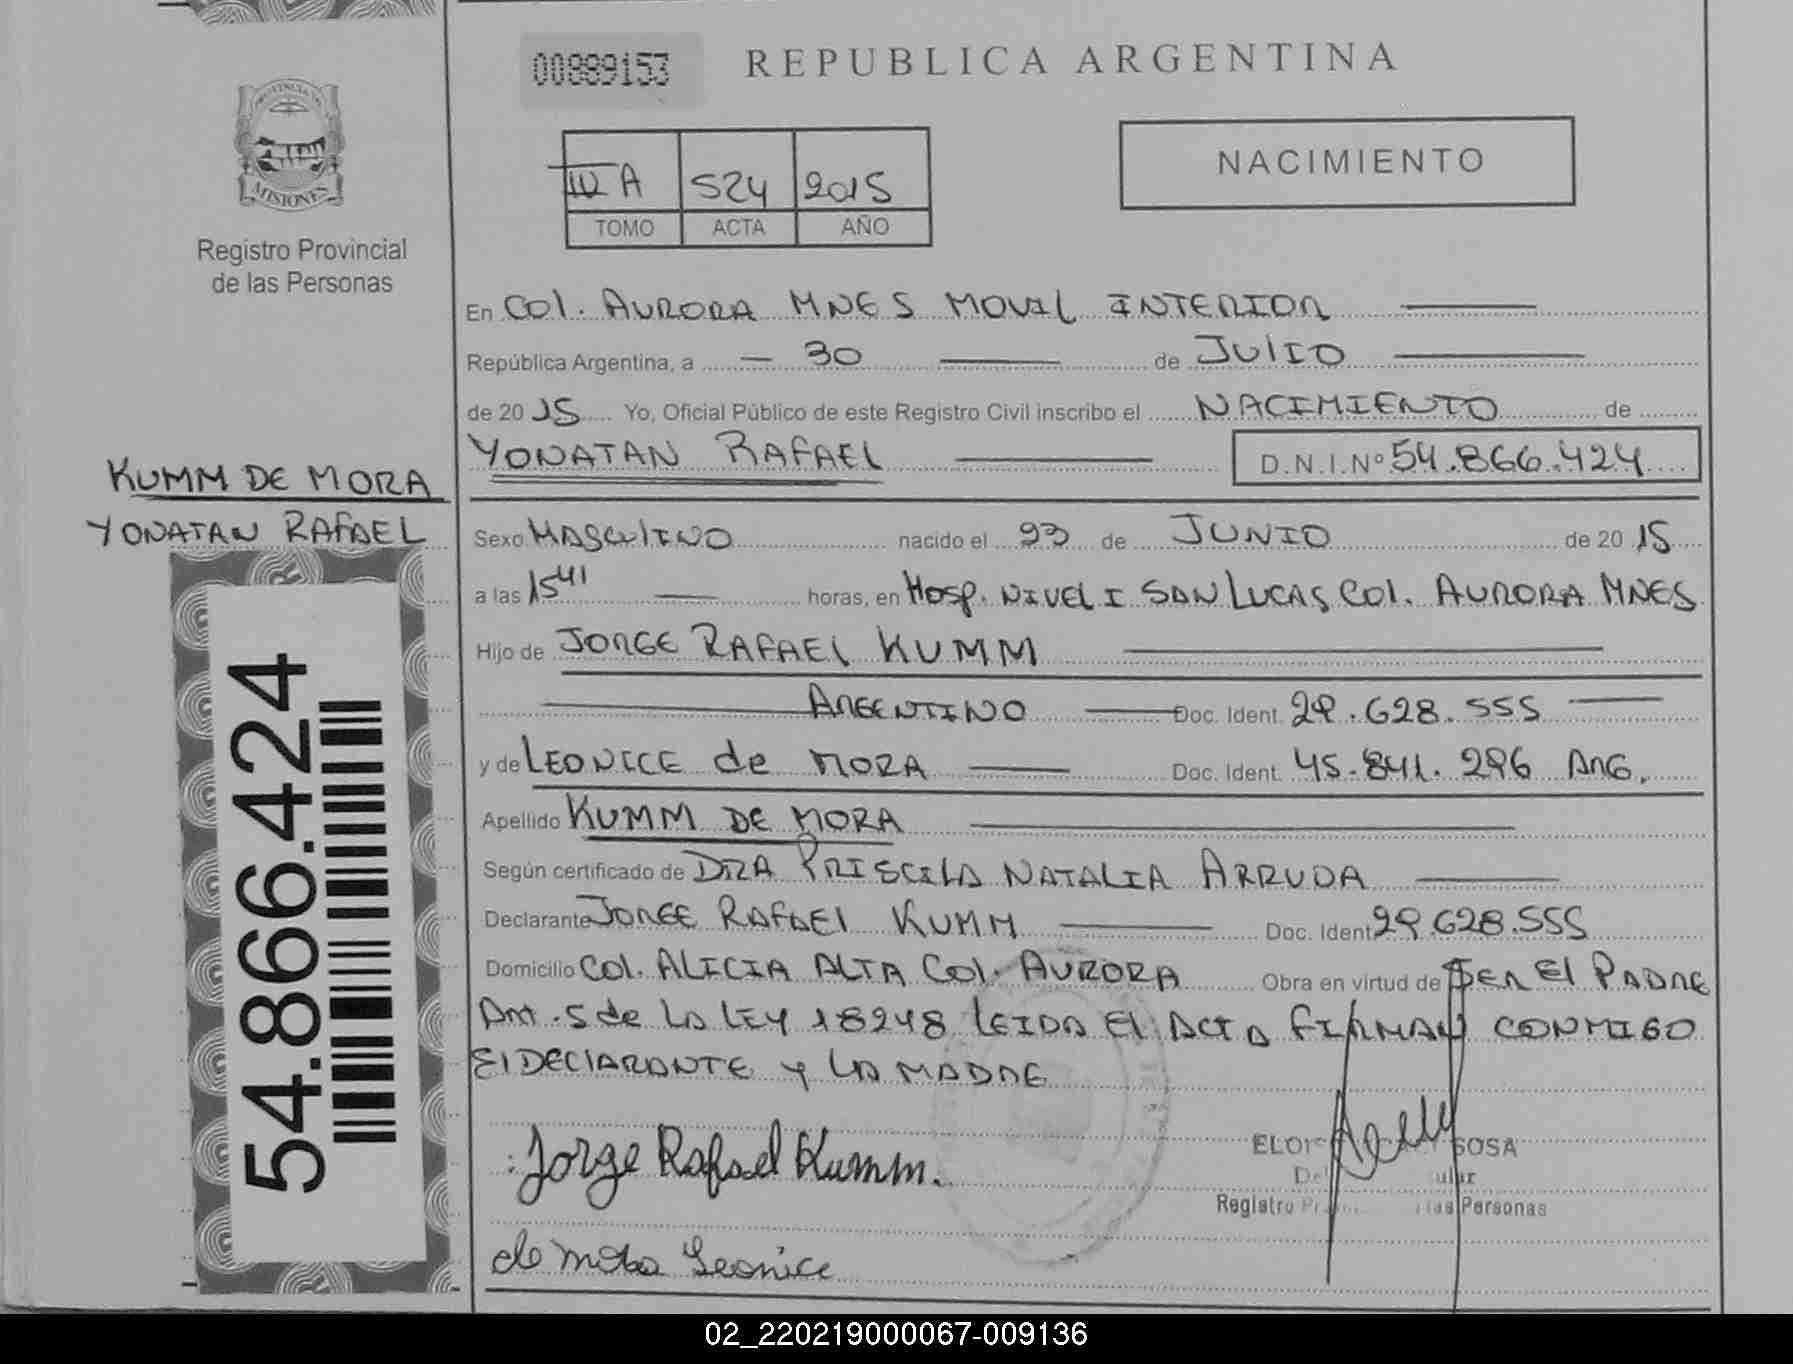 00889153
REPUBLICA ARGENTINA
PROVINCIA DE
MISIONES
Registro Provincial
de las Personas
III A 524 2015
TOMO ACTA AÑO
NACIMIENTO
En Col. AURORA MNES MOVIL INTERIOR
República Argentina, a 30 de JULIO
de 2015 Yo, Oficial Público de este Registro Civil inscribo el NACIMIENTO de
YONATAN RAFAEL D.N.I.Nº 54.866.424
KUMM DE MORA
YONATAN RAFAEL
54.866.424
Sexo MASCULINO nacido el 23 de JUNIO de 2015
a las 15 41 horas, en Hosp. NIVEL I SAN LUCAS Col. AURORA MNES
Hijo de JORGE RAFAEL KUMM
ARGENTINO Doc. Ident. 29.628.555
y de LEONICE de MORA Doc. Ident. 45.841.296 ARG.
Apellido KUMM DE MORA
Según certificado de DRA PRISCILA NATALIA ARRUDA
Declarante JORGE RAFAEL KUMM Doc. Ident 29.628.555
Domicilio Col. ALICIA ALTA Col. AURORA Obra en virtud de SER El PADRE
Art. 5 de LA LEY 18248 LEIDA El ACTA FIRMAN CONMIGO
El DECLARANTE Y LA MADRE
Jorge Rafael Kumm.
SOSA
Registro las Personas
de Mora Leonice
02_220219000067-009136